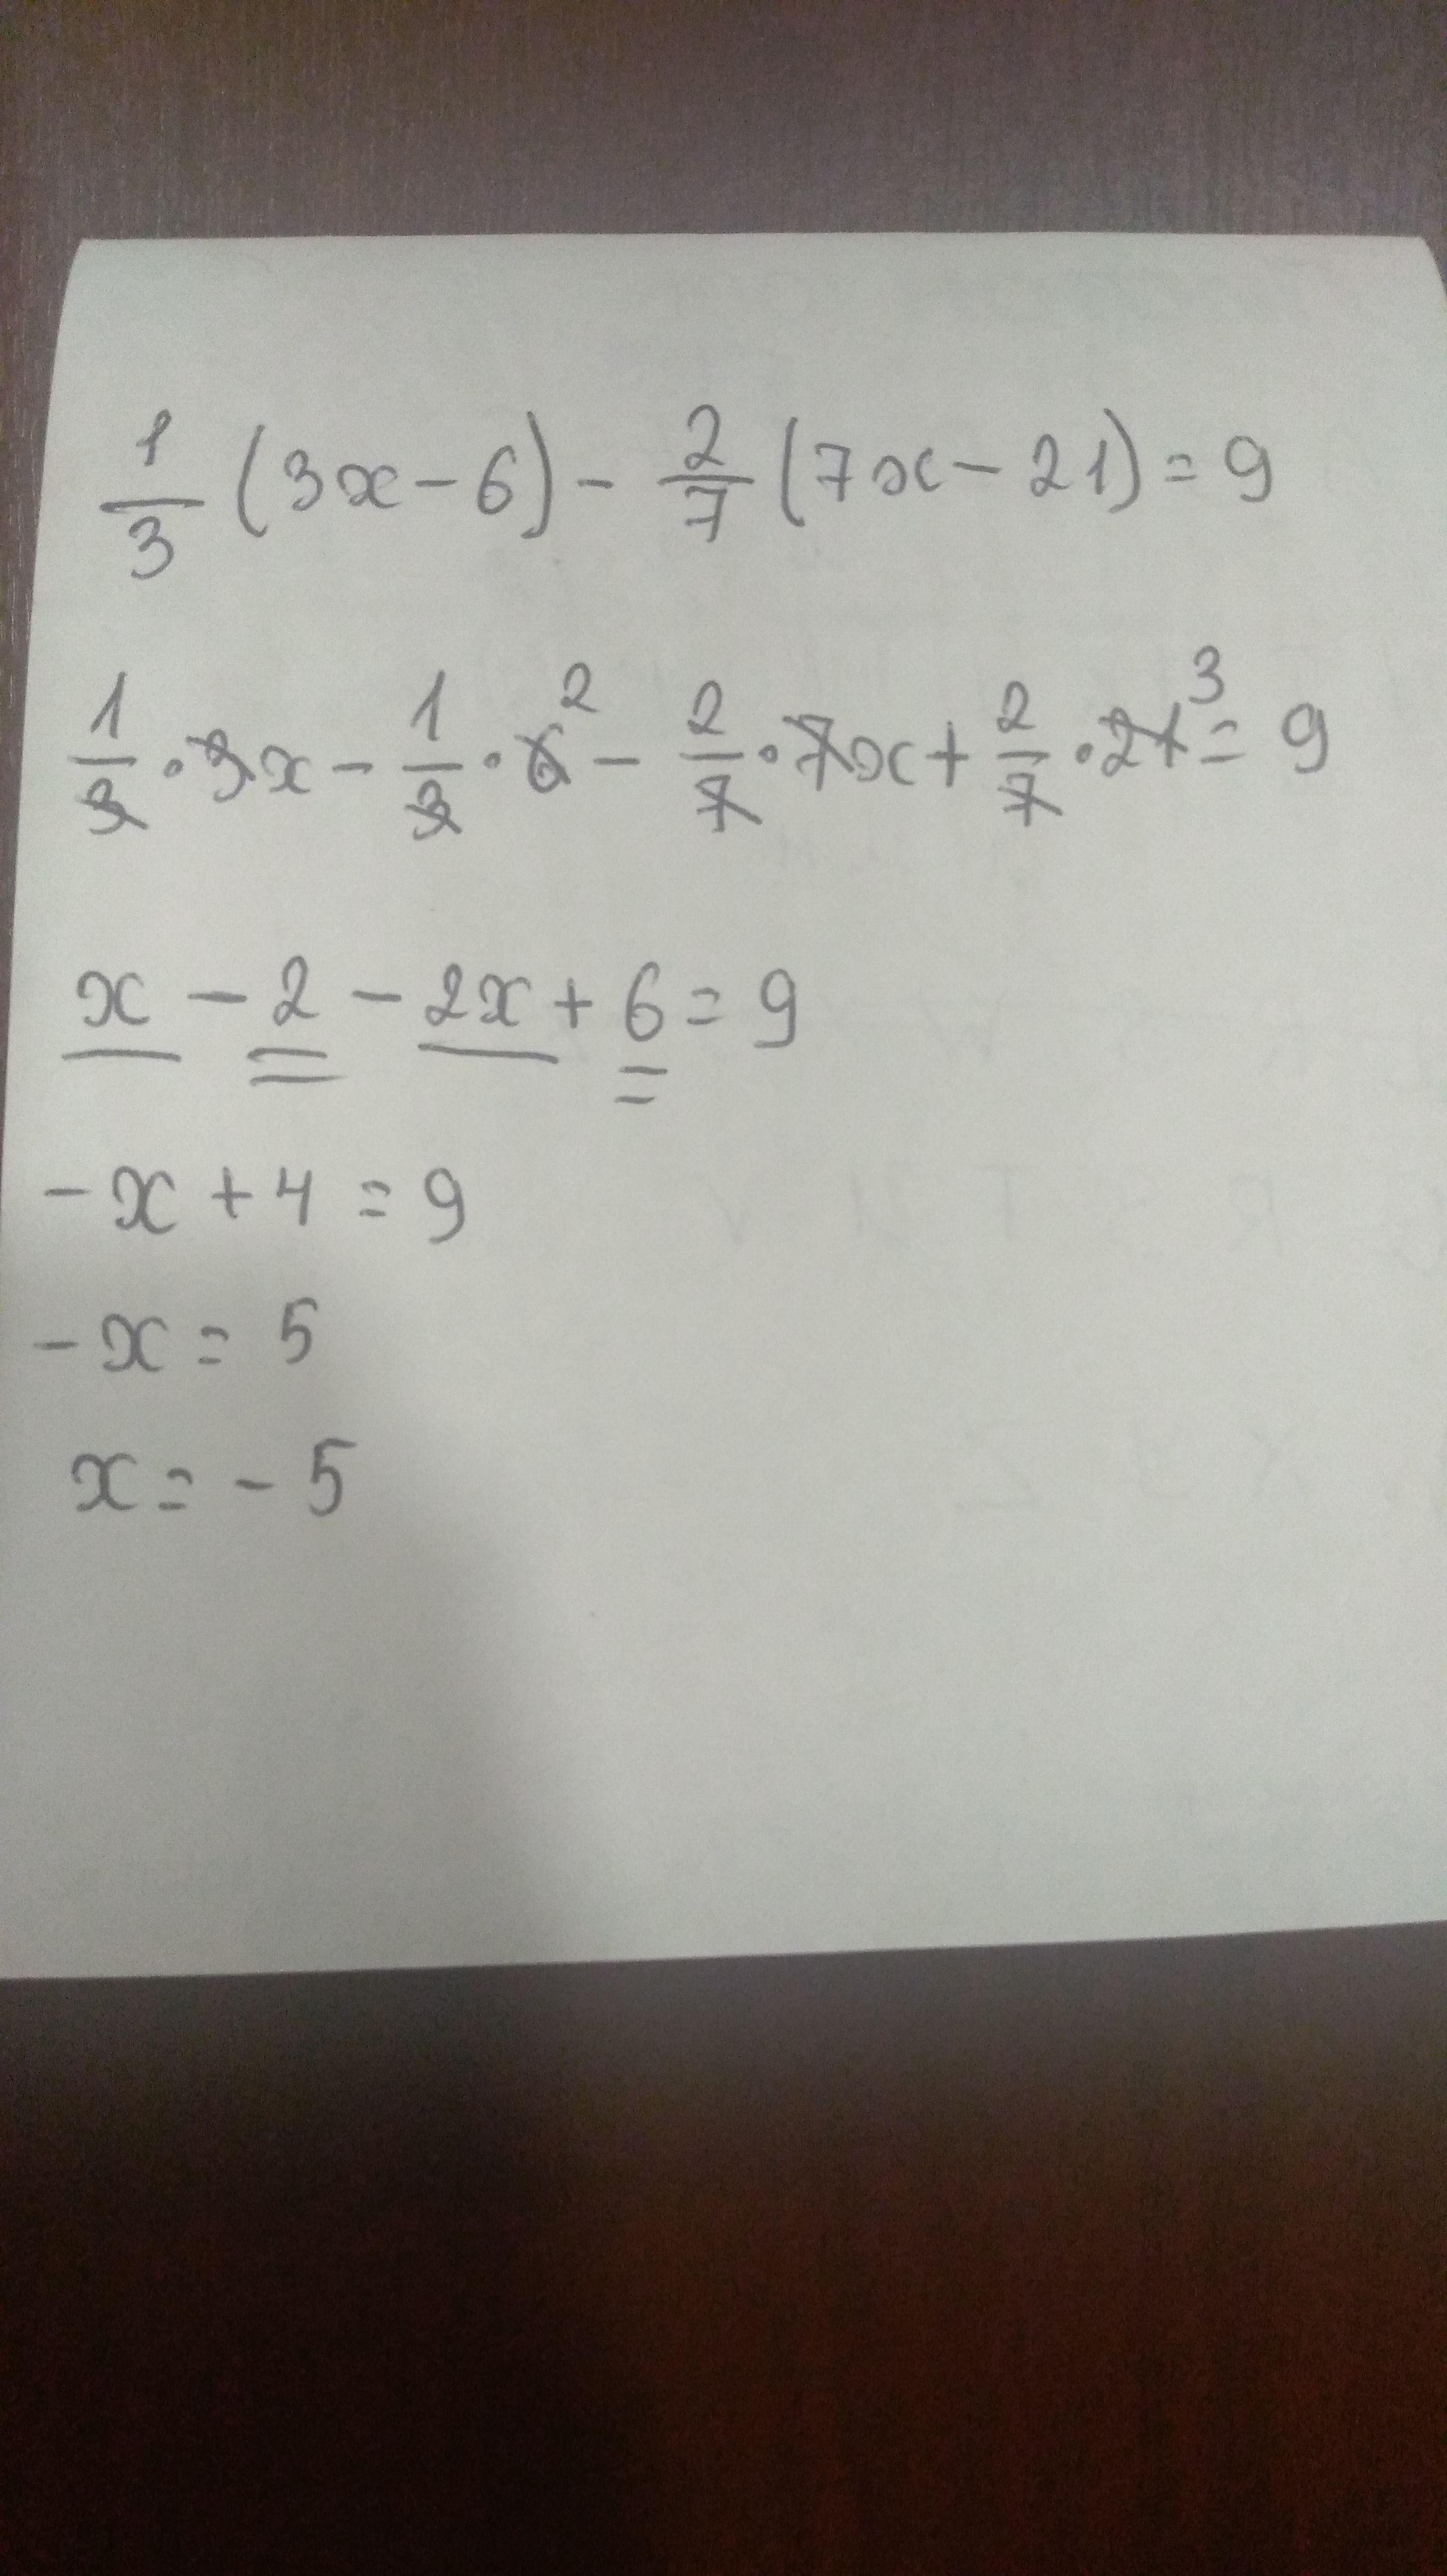 1/3 (3x - 6) - 2/7 (7x - 21) = 9
1/3 · 3x - 1/3 · 6 2 - 2/7 · 7x + 2/7 · 21 3 = 9
x - 2 - 2x + 6 = 9
-x + 4 = 9
-x = 5
x = -5